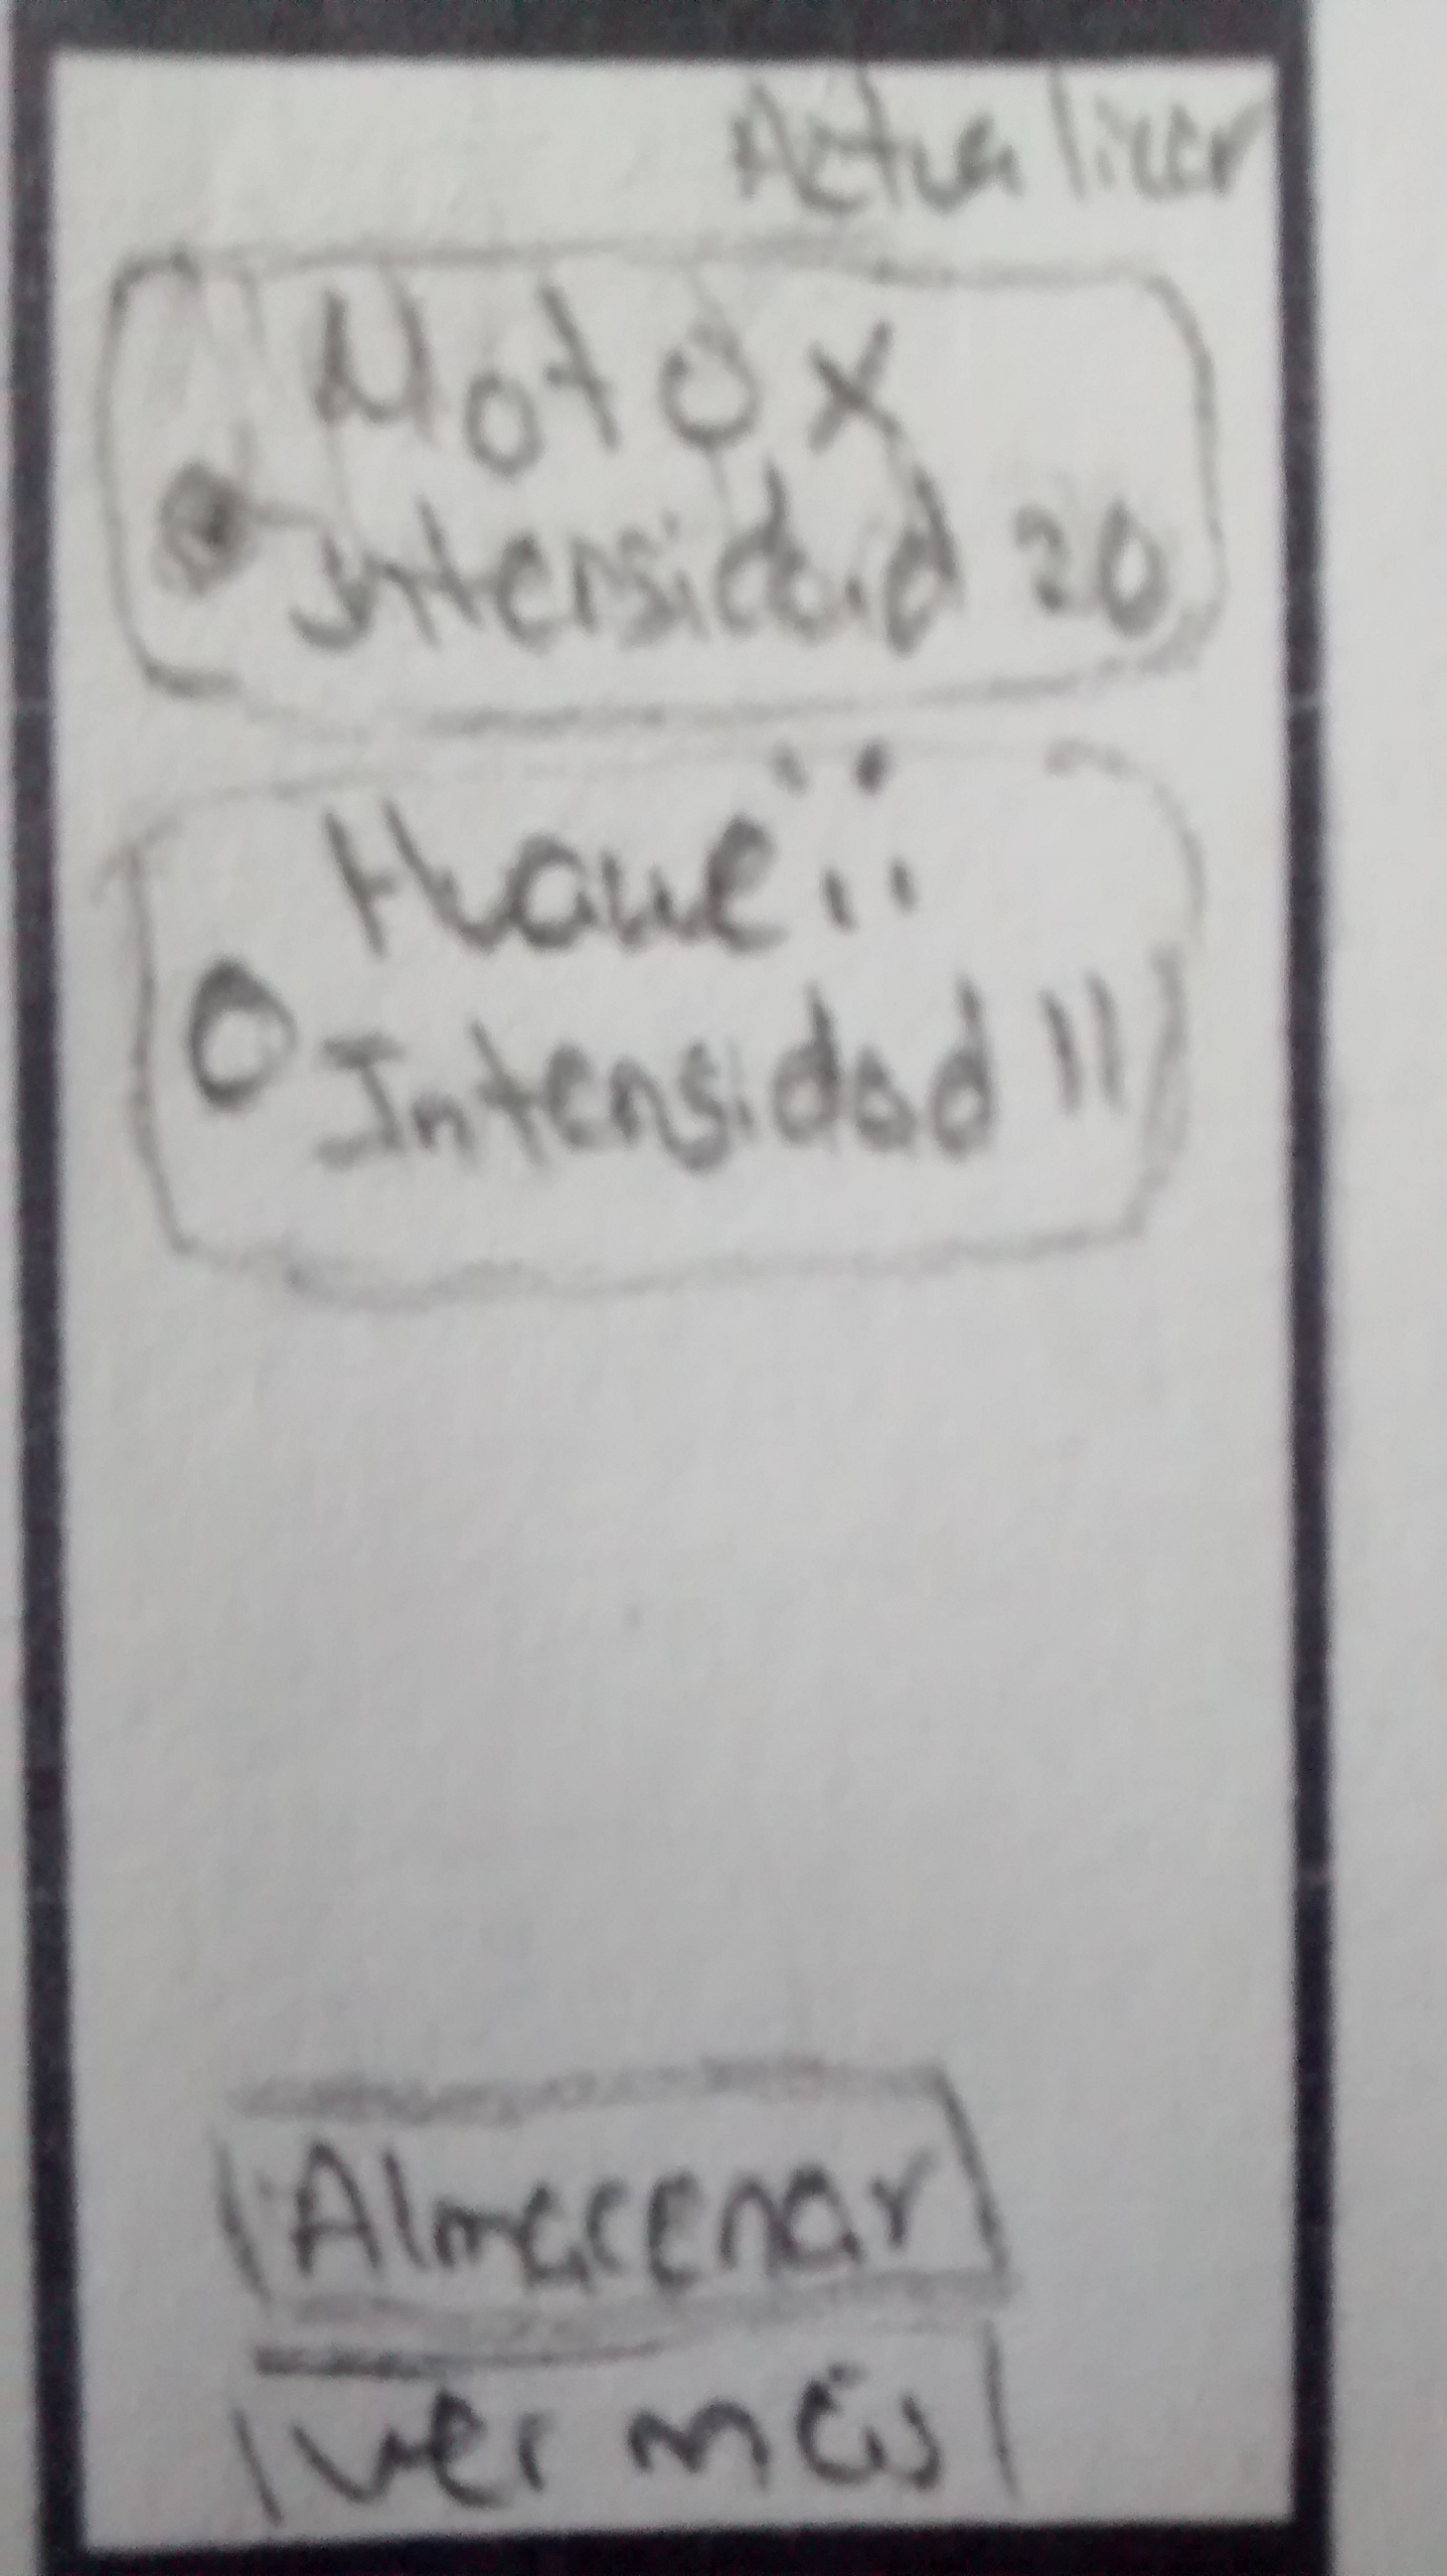 Actualizar
Moto X
Intensidad 20
Huaweii
Intensidad 11
Almacenar
ver más